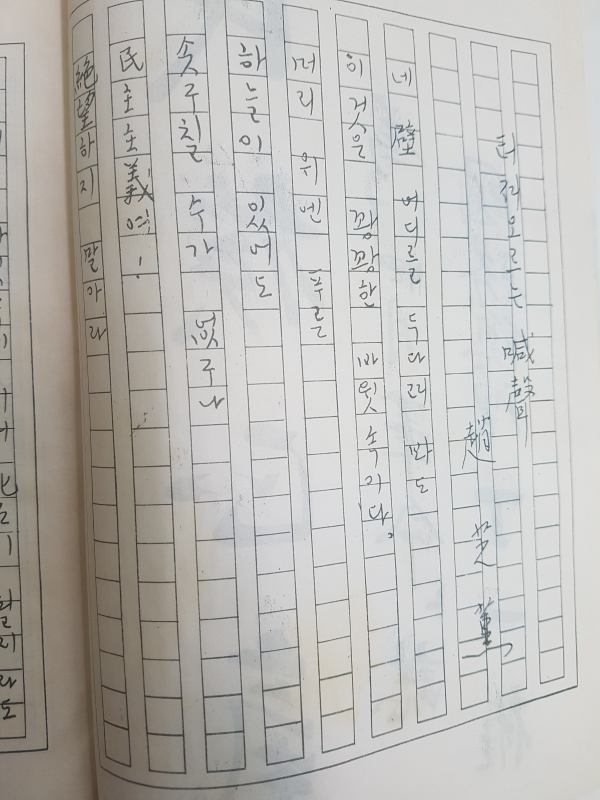 터져오르는 喊聲
趙芝薰
네 壁 어디를 두다려 봐도
이것은 꽝꽝한 바윗속이다。
머리 위엔 푸른
하늘이 있어도
솟구칠 수가 없구나
民主主義여!
絶望하지 말아라